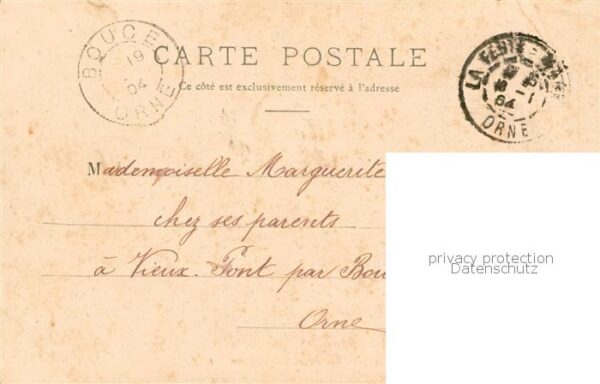 BOUCE
19
04
ORNE
CARTE POSTALE
Ce côté est exclusivement réservé à l'adresse
LA FERTE
18
04
ORNE
Mademoiselle Marguerite
chez ses parents
à Vieux-Pont par Bou
Orne
privacy protection
Datenschutz